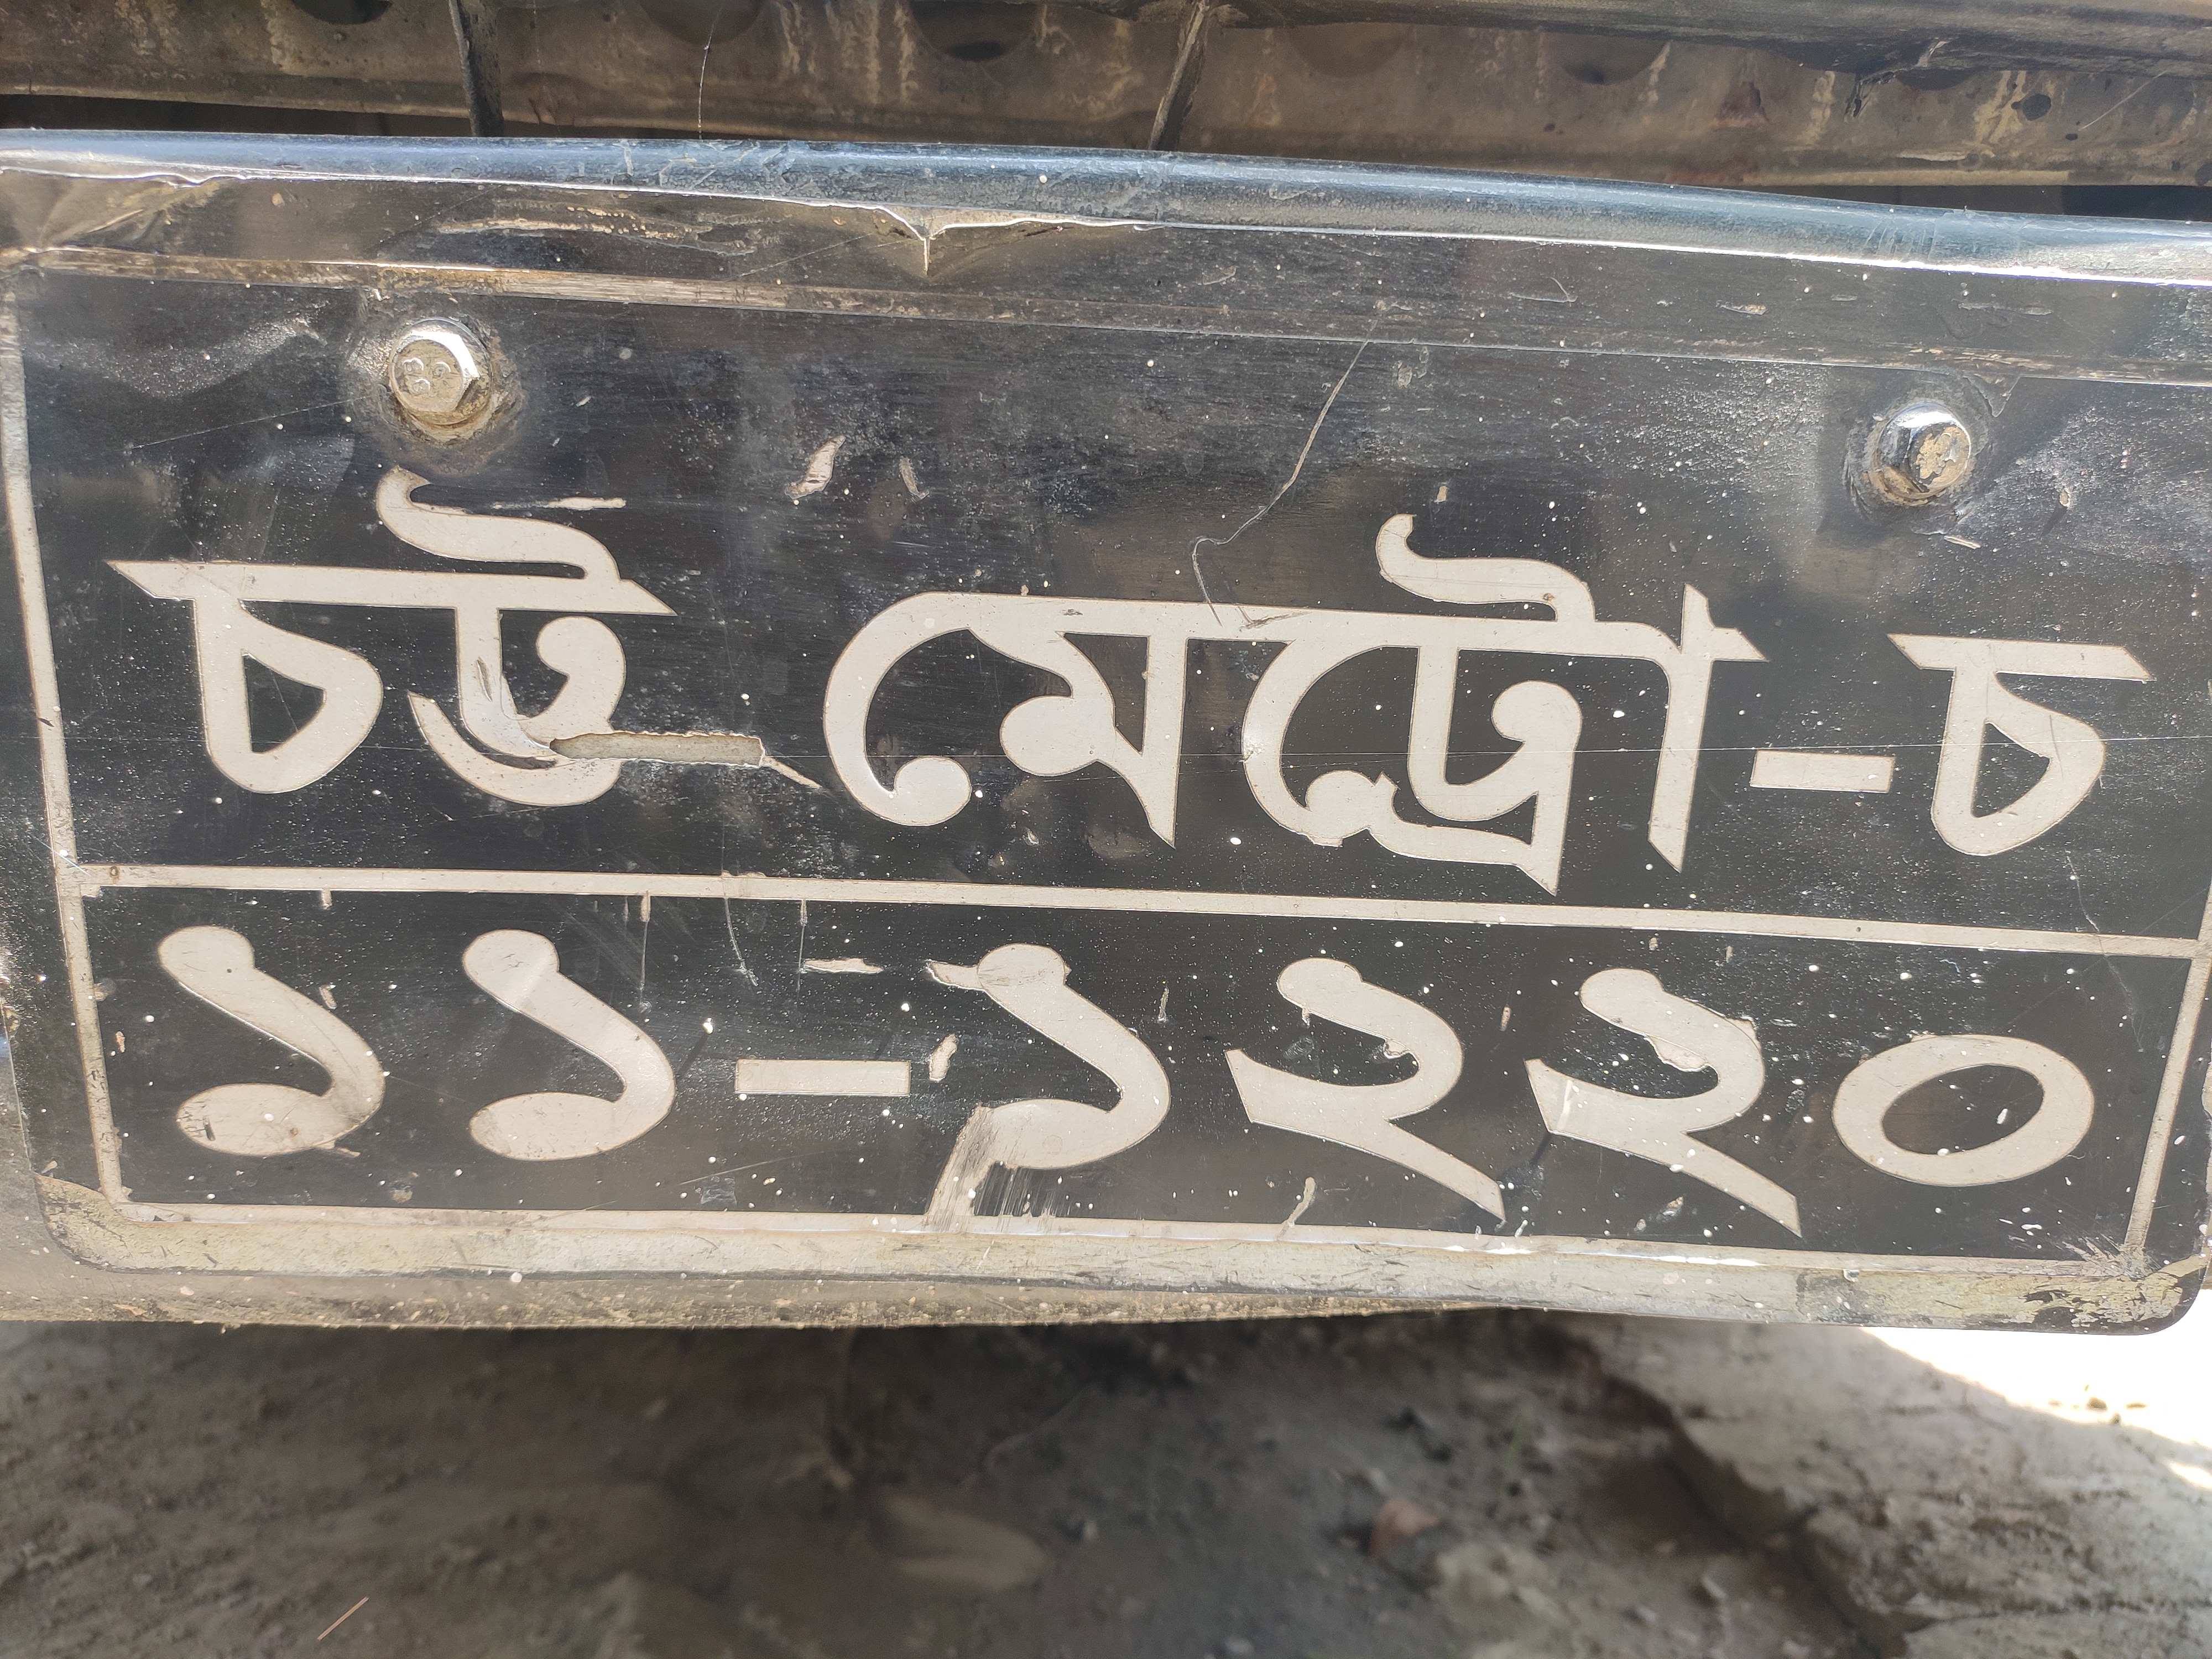 চট্ট মেট্রো-চ
১১-১২২০